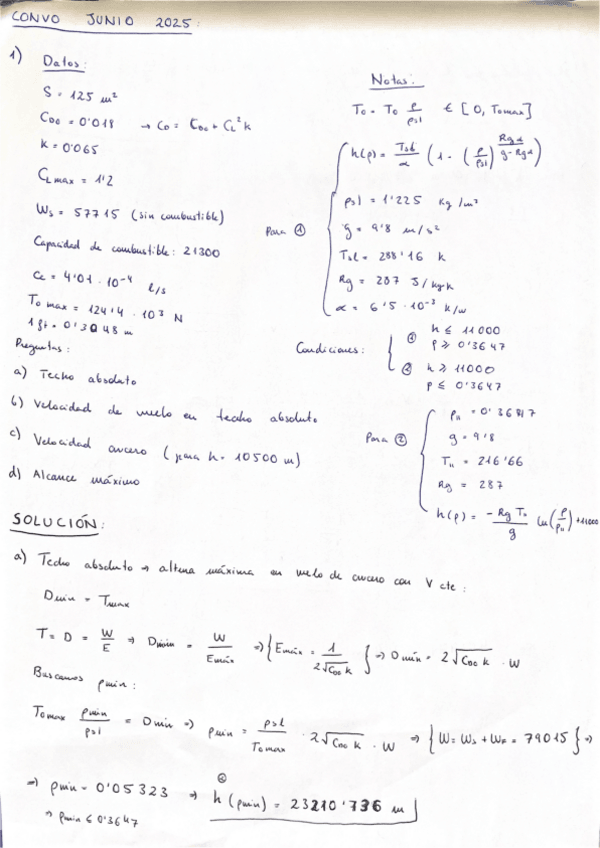 CONVO JUNIO 2025:
1) Datos:
S = 125 m²
CD0 = 0'018 → CD = CD0 + CL² k
k = 0'065
CL max = 1'2
Ws = 57715 (sin combustible)
Capacidad de combustible: 21300
Ce = 4'01 · 10⁻⁴ l/s
To max = 124'4 · 10³ N
1 ft = 0'3048 m
Preguntas:
a) Techo absoluto
b) Velocidad de vuelo en techo absoluto
c) Velocidad crucero (para h = 10500 m)
d) Alcance máximo
Notas:
To = To ρ/ρsl ∈ [0, Tomax]
Para ①
h(ρ) = Tsl/α (1 - (ρ/ρsl)^(Rgα/(g-Rgα)))
ρsl = 1'225 kg/m³
g = 9'8 m/s²
Tsl = 288'16 k
Rg = 287 J/kg·k
α = 6'5 · 10⁻³ k/m
Condiciones:
① h ≤ 11000
ρ ≥ 0'3647
② h ≥ 11000
ρ ≤ 0'3647
Para ②
g = 9'8
T₁₁ = 216'66
Rg = 287
h(ρ) = -Rg T₁₁/g ln(ρ/ρ₁₁) + 11000
SOLUCIÓN:
a) Techo absoluto → altura máxima en vuelo de crucero con V cte:
Dmin = Tmax
T = D = W/E ⇒ Dmin = W/Emáx ⇒ {Emáx = 1/(2√(CD0 k))} ⇒ Dmín = 2√(CD0 k) · W
Buscamos ρmin:
Tomax ρmin/ρsl = Dmin ⇒ ρmin = ρsl/Tomax · 2√(CD0 k) · W ⇒ {W = Ws + WF = 79015} ⇒
⇒ ρmin = 0'05323 ⇒ ② h(ρmin) = 23210'736 m
→ ρmin ≤ 0'3647